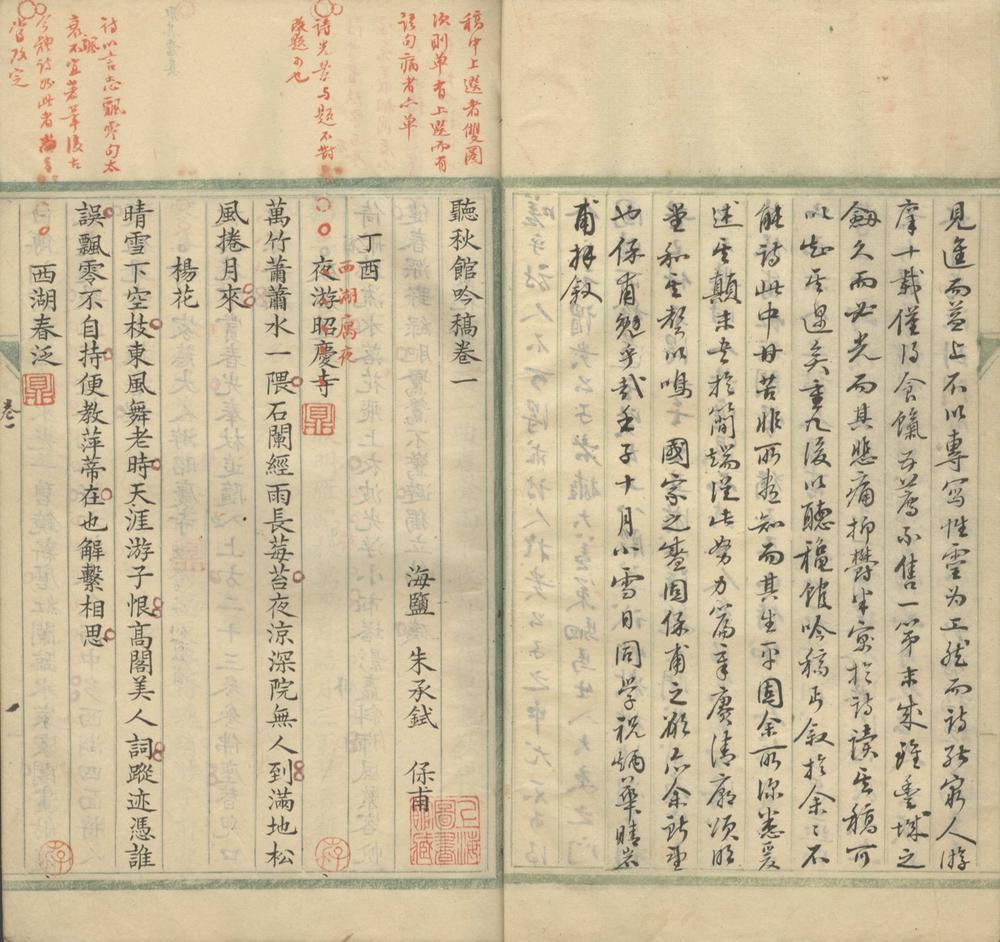 見進而益上不以專寫性靈为工然而詩能窮人游
摩十載僅得食餼五薦不售一第未成雖豐城之
劍久而必光而其悲痛抑鬱半寓於詩讀其稿可
以知其遇矣重九後以聽穐館吟稿丐叙於余〻不
能詩此中甘苦非所甚知而其生平固余所深悉爰
述其顛末书於簡端從此努力篇章賡清廟頌明
堂和其聲以鳴 國家之盛固保甫之願亦余所望
也保甫勉乎哉壬子十月小雪日同學祝炳華晴岩
甫拜叙
稿中上選者雙圈
次則单者上選而有
語句病者亦单
詩光景与題不對
改題可也
詩以言志飄零句太
衰飒不宜著筆後古
今體詩如此者
當改定
聽秋館吟稿卷一
海鹽 朱承鉽 保甫
上海圖書館藏
丁酉
夜游昭慶寺
西湖寓夜
萬竹蕭蕭水一隈石闌經雨長莓苔夜涼深院無人到滿地松
風捲月來
楊花
晴雪下空枝東風舞老時天涯游子恨高閣美人詞蹤迹憑誰
誤飄零不自持便教萍蒂在也解繫相思
西湖春泛
卷一